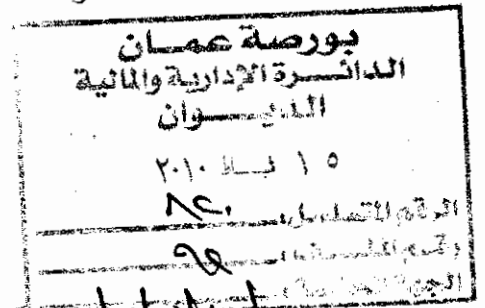 بورصة عمان
الدائرة الإدارية والمالية
الديوان
١٥ شباط ٢٠١٠
الرقم المتسلسل
رقم الملف
الجهة المختصة